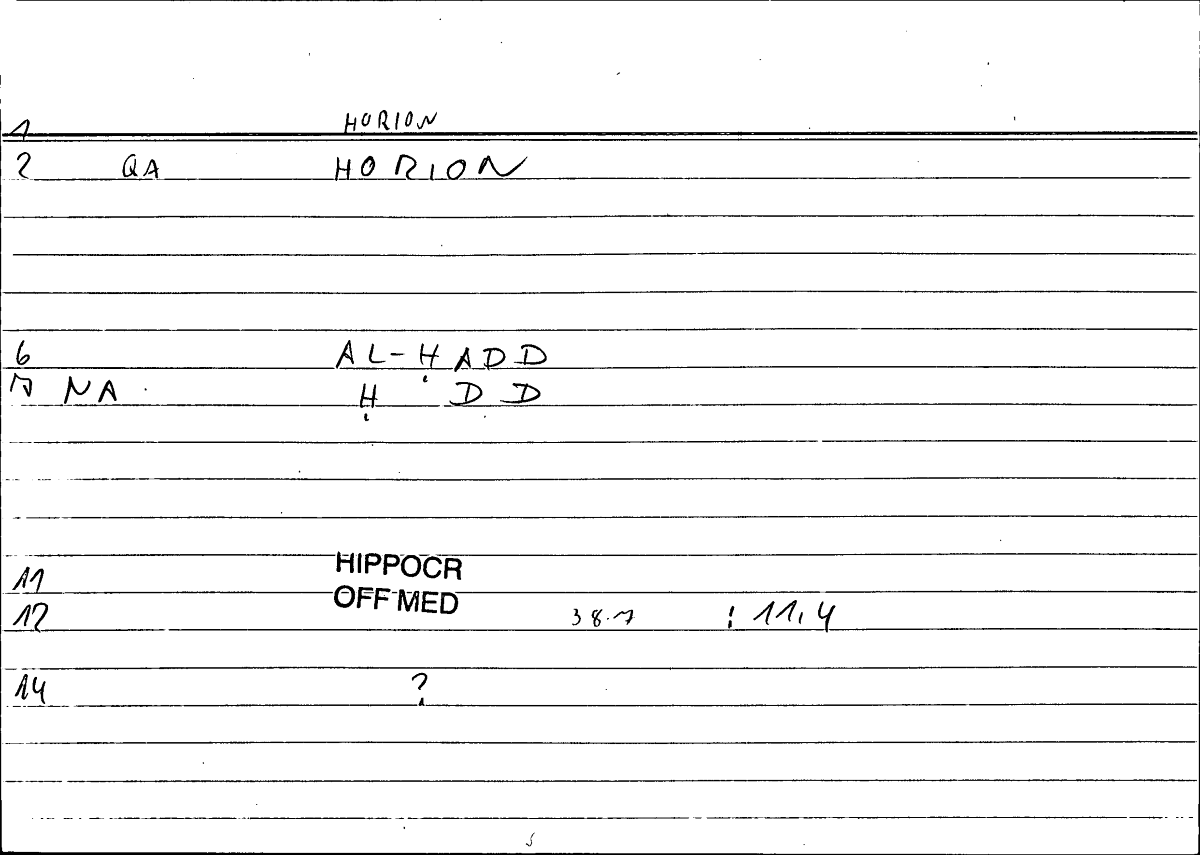 1 HORION
2 QA HORION
6 AL-ḤADD
7 NA Ḥ DD
11 HIPPOCR
12 OFF MED 38.7 : 11,4
14 ?